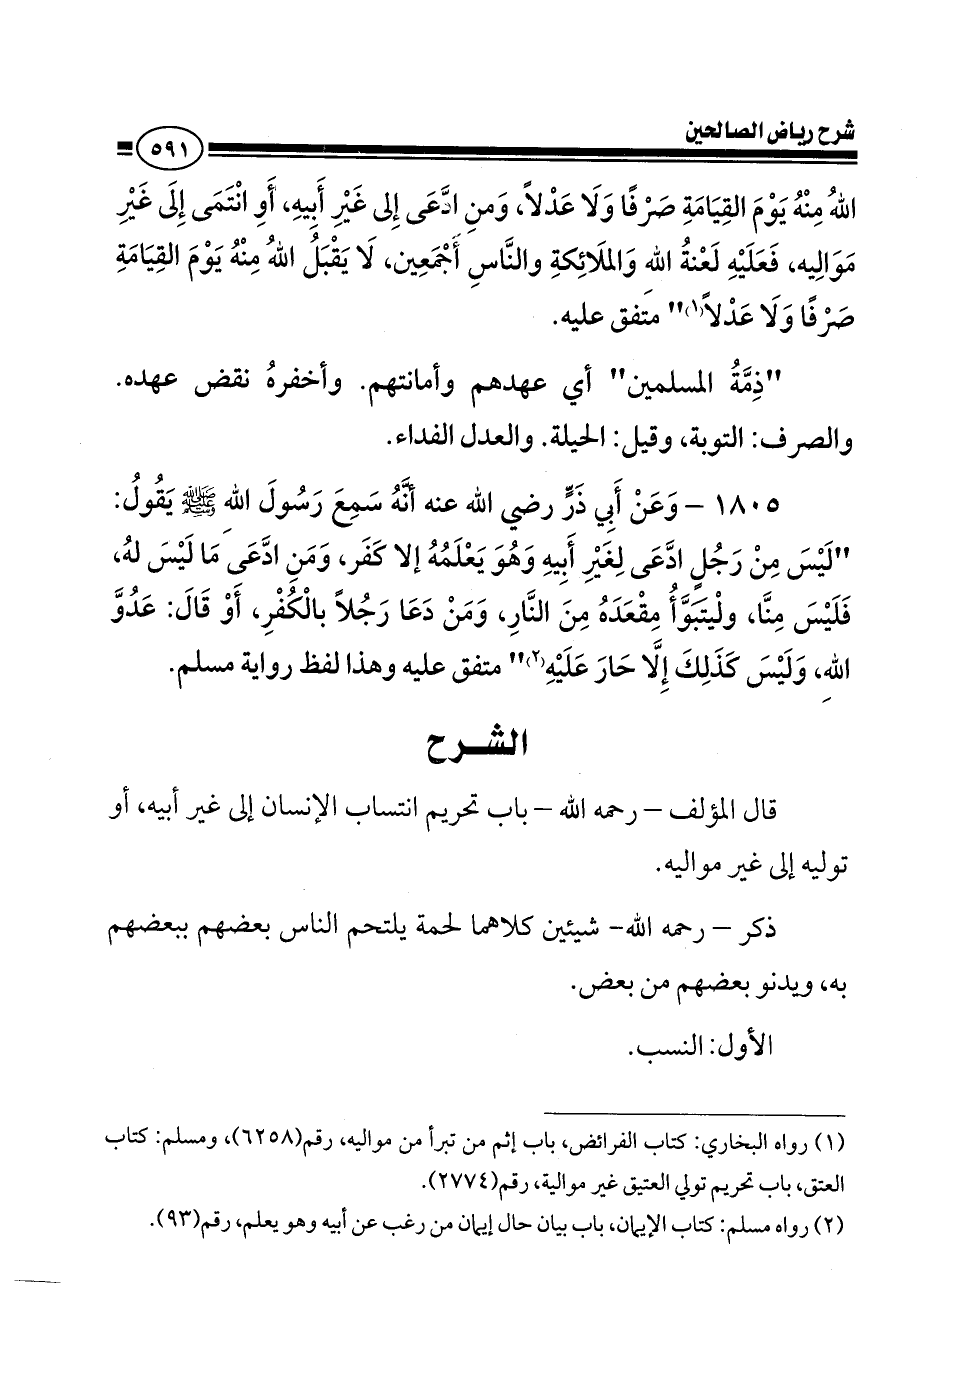 شرح رياض الصالحين
٥٩١
اللهُ مِنْهُ يَوْمَ القِيَامَةِ صَرْفًا وَلَا عَدْلاً، وَمَنِ ادَّعَى إِلى غَيْرِ أَبِيهِ، أَوِ انْتَمَى إِلَى غَيْرِ
مَوَالِيه، فَعَلَيْهِ لَعْنَةُ الله وَالملَائِكةِ والنَّاسِ أَجْمَعِين، لَا يَقْبَلُ اللهُ مِنْهُ يَوْمَ القِيَامَةِ
صَرْفًا وَلَا عَدْلاً(١)" متفق عليه.
"ذِمَّةُ المسلمين" أي عهدهم وأمانتهم. وأخفرهُ نقض عهده.
والصرف: التوبة، وقيل: الحيلة. والعدل الفداء.
١٨٠٥ – وَعَنْ أَبِي ذَرٍّ رضي الله عنه أَنَّهُ سَمِعَ رَسُولَ اللهِ ﷺ يَقُولُ:
"لَيْسَ مِنْ رَجُلٍ ادَّعَى لِغَيْرِ أَبِيهِ وَهُوَ يَعْلَمُهُ إلا كَفَر، وَمَنِ ادَّعَى مَا لَيْسَ لهُ،
فَلَيْسَ مِنَّا، ولْيَتَبَوَّأُ مِقْعَدَهُ مِنَ النَّارِ، وَمَنْ دَعَا رَجُلاً بالْكُفْرِ، أَوْ قَالَ: عَدُوَّ
اللهِ، وَلَيْسَ كَذَلِكَ إِلَّا حَارَ عَلَيْهِ(٢)" متفق عليه وهذا لفظ رواية مسلم.
الشـرح
قال المؤلف – رحمه الله – باب تحريم انتساب الإنسان إلى غير أبيه، أو
توليه إلى غير مواليه.
ذكر – رحمه الله- شيئين كلاهما لحمة يلتحم الناس بعضهم ببعضهم
به، ويدنو بعضهم من بعض.
الأول: النسب.
(١) رواه البخاري: كتاب الفرائض، باب إثم من تبرأ من مواليه، رقم(٦٢٥٨)، ومسلم: كتاب
العتق، باب تحريم تولي العتيق غير موالية، رقم(٢٧٧٤).
(٢) رواه مسلم: كتاب الإيمان، باب بيان حال إيمان من رغب عن أبيه وهو يعلم، رقم(٩٣).